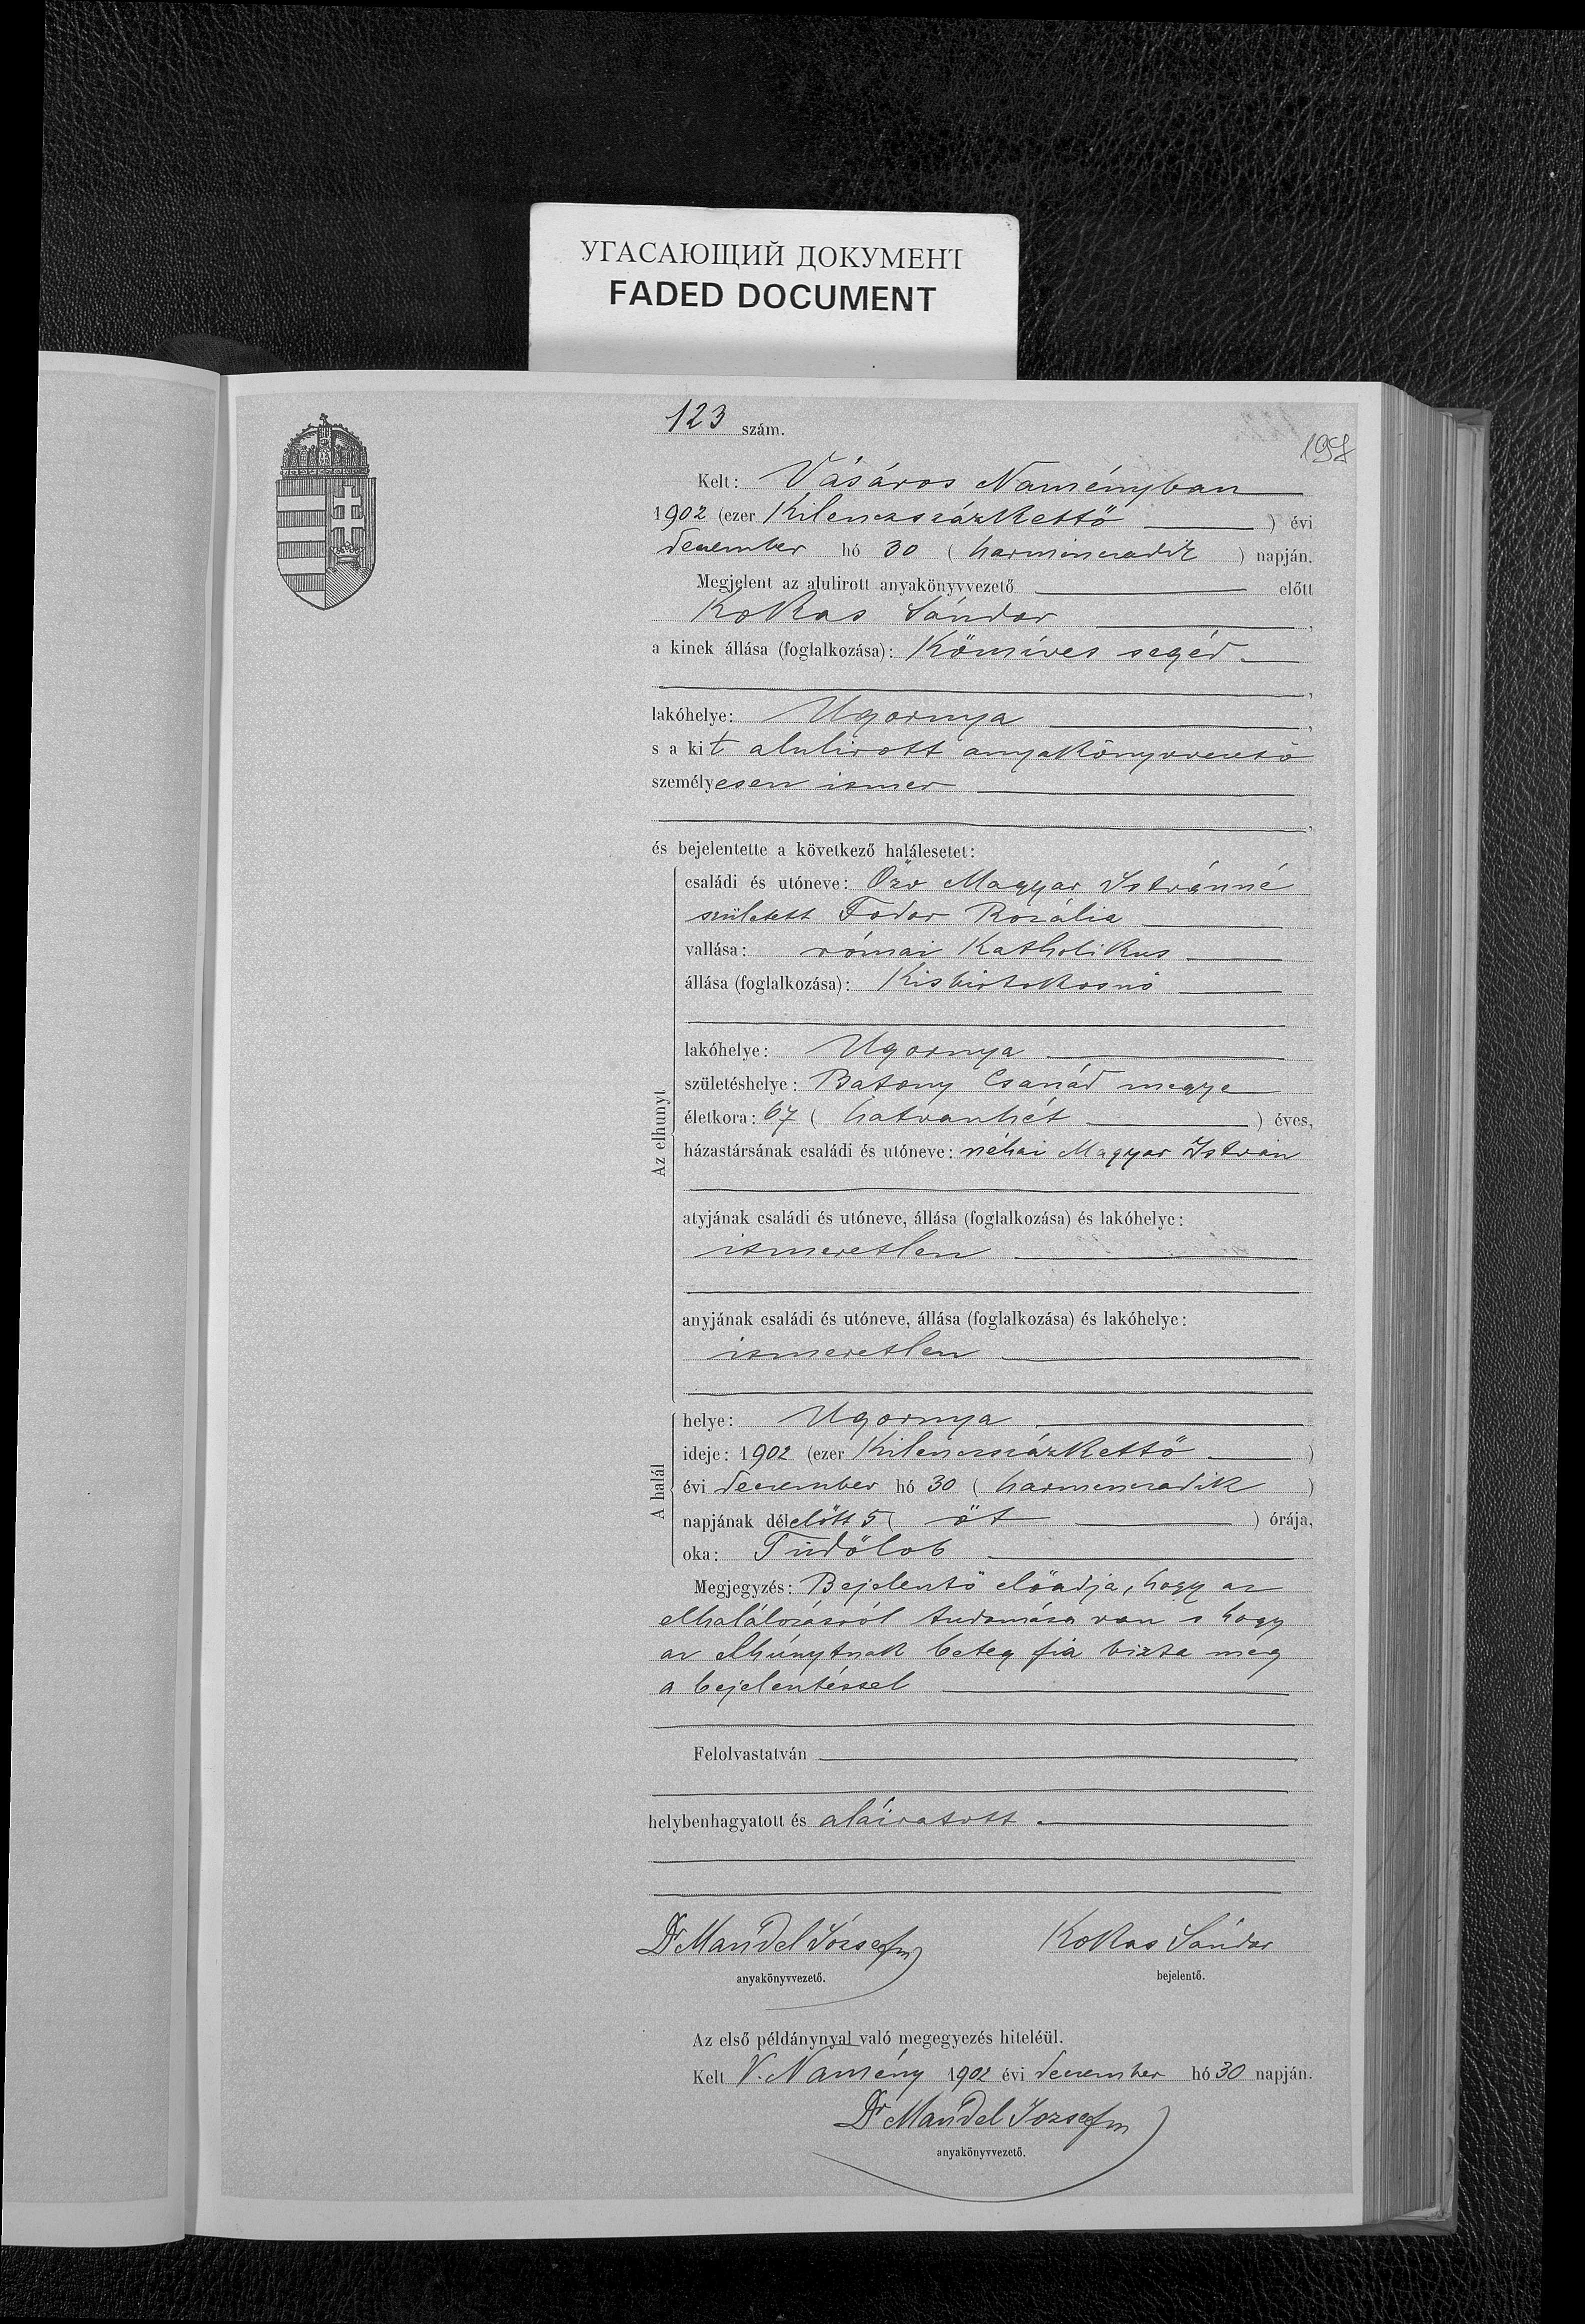 УГАСАЮЩИЙ ДОКУМЕНТ
FADED DOCUMENT
123 szám.
Kelt: Vásáros Naményban
1902 (ezer Kilenczszázkettő ) évi
december hó 30 ( harminczadik ) napján.
Megjelent az alulirott anyakönyvvezető előtt
Kokas Sándor ,
a kinek állása (foglalkozása): Kőmíves segéd
,
lakóhelye: Ugornya ,
s a kit alulirott anyakönyvvezető
személyesen ismer
,
és bejelentette a következő halálesetet:
Az elhunyt
családi és utóneve: Özv Magyar Istvánné
született Fodor Rozália
vallása: római Katholikus
állása (foglalkozása): Kisbirtokosnő
lakóhelye: Ugornya
születéshelye: Batony Csanád megye
életkora: 67 ( hatvanhét ) éves,
házastársának családi és utóneve: néhai Magyar István
atyjának családi és utóneve, állása (foglalkozása) és lakóhelye:
ismeretlen
anyjának családi és utóneve, állása (foglalkozása) és lakóhelye:
ismeretlen
A halál
helye: Ugornya
ideje: 1902 (ezer Kilenczszázkettő )
évi december hó 30 ( harminczadik )
napjának délelőtt 5 ( öt ) órája,
oka: Tüdőlob
Megjegyzés: Bejelentő előadja, hogy az
elhalálozásról tudomása van s hogy
az elhúnytnak beteg fia bizta meg
a bejelentéssel
Felolvastatván
helybenhagyatott és aláiratott.
Dr Mandel József Kokas Sándor
anyakönyvvezető. bejelentő.
Az első példánynyal való megegyezés hiteléül.
Kelt V. Namény 1902 évi december hó 30 napján.
Dr Mandel József
anyakönyvvezető.